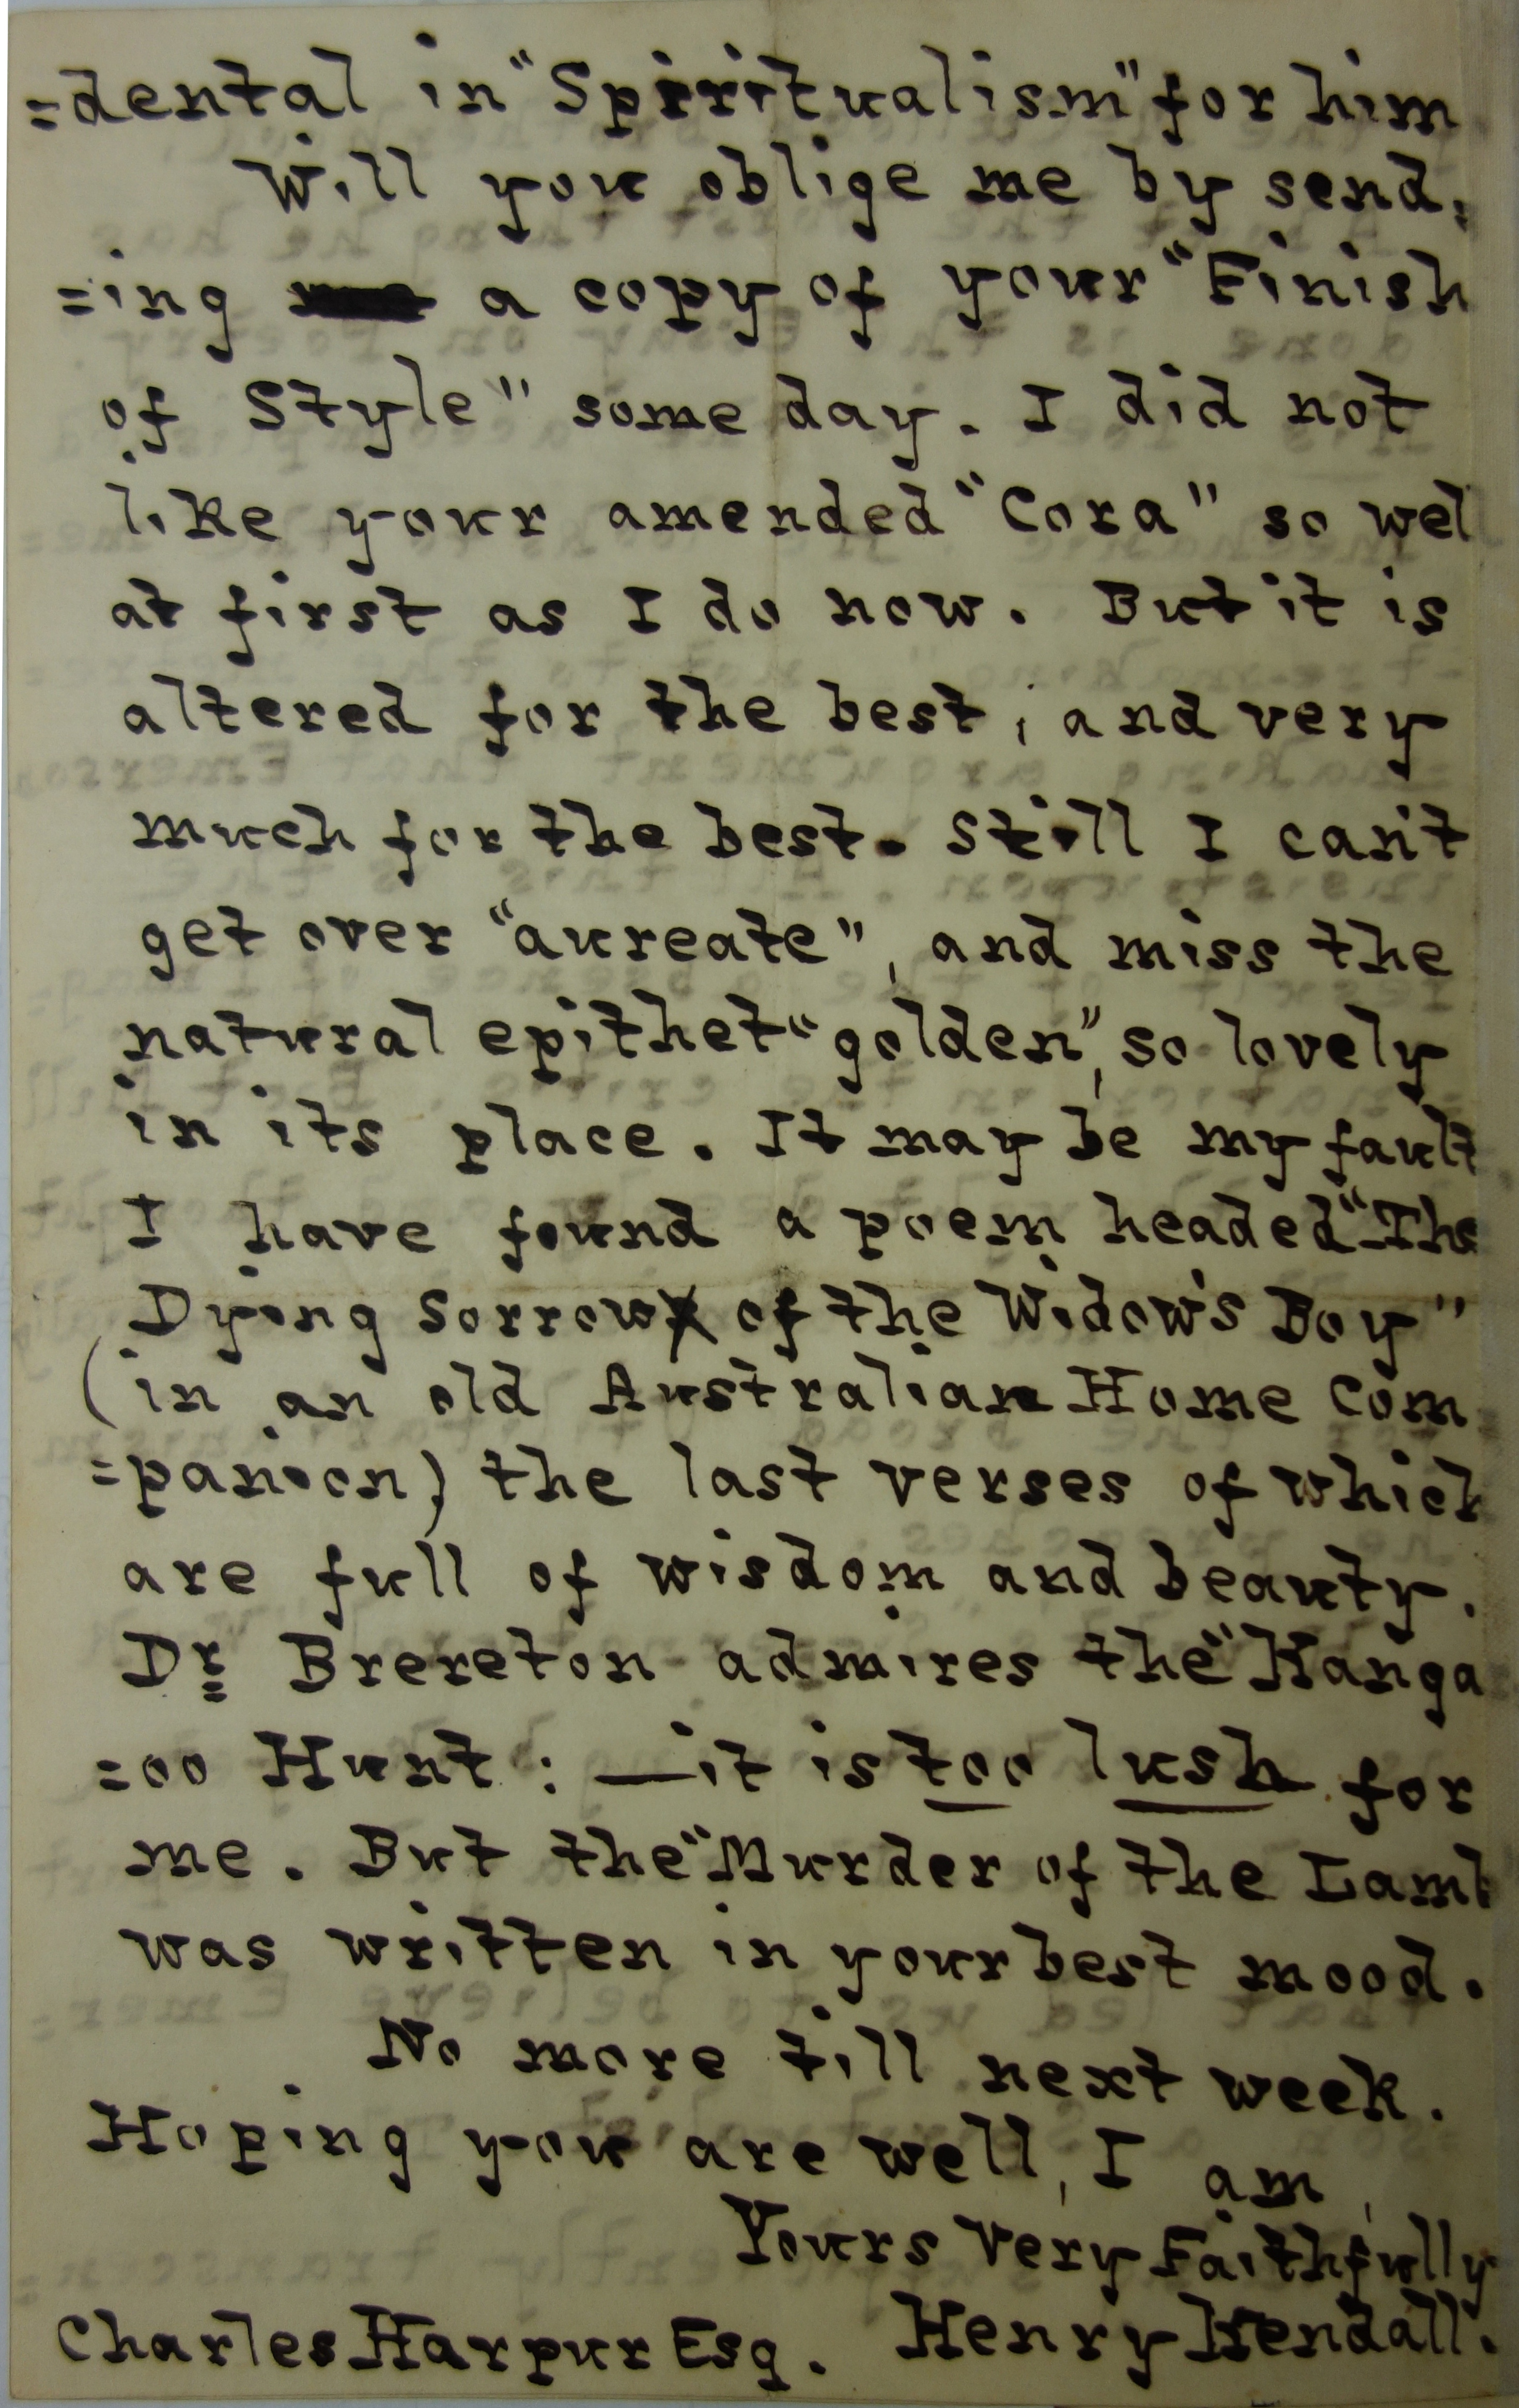 =dental in "Spiritualism" for him
Will you oblige me by send=
=ing a copy of your "Finish
of Style" some day. I did not
like your amended "Cora" so wel
at first as I do now. But it is
altered for the best, and very
much for the best. Still I can't
get over "aureate", and miss the
natural epithet "golden", so lovely
in its place. It may be my fault
I have found a poem headed "The
Dying Sorrow of the Widow's Boy"
(in an old Australian Home Com
=panion) the last verses of which
are full of wisdom and beauty.
Dr Brereton admires the "Kanga
=oo Hunt: — it is too lush for
me. But the "Murder of the Lamb
was written in your best mood.
No more till next week.
Hoping you are well, I am,
Yours Very Faithfully
Charles Harpur Esq. Henry Kendall.